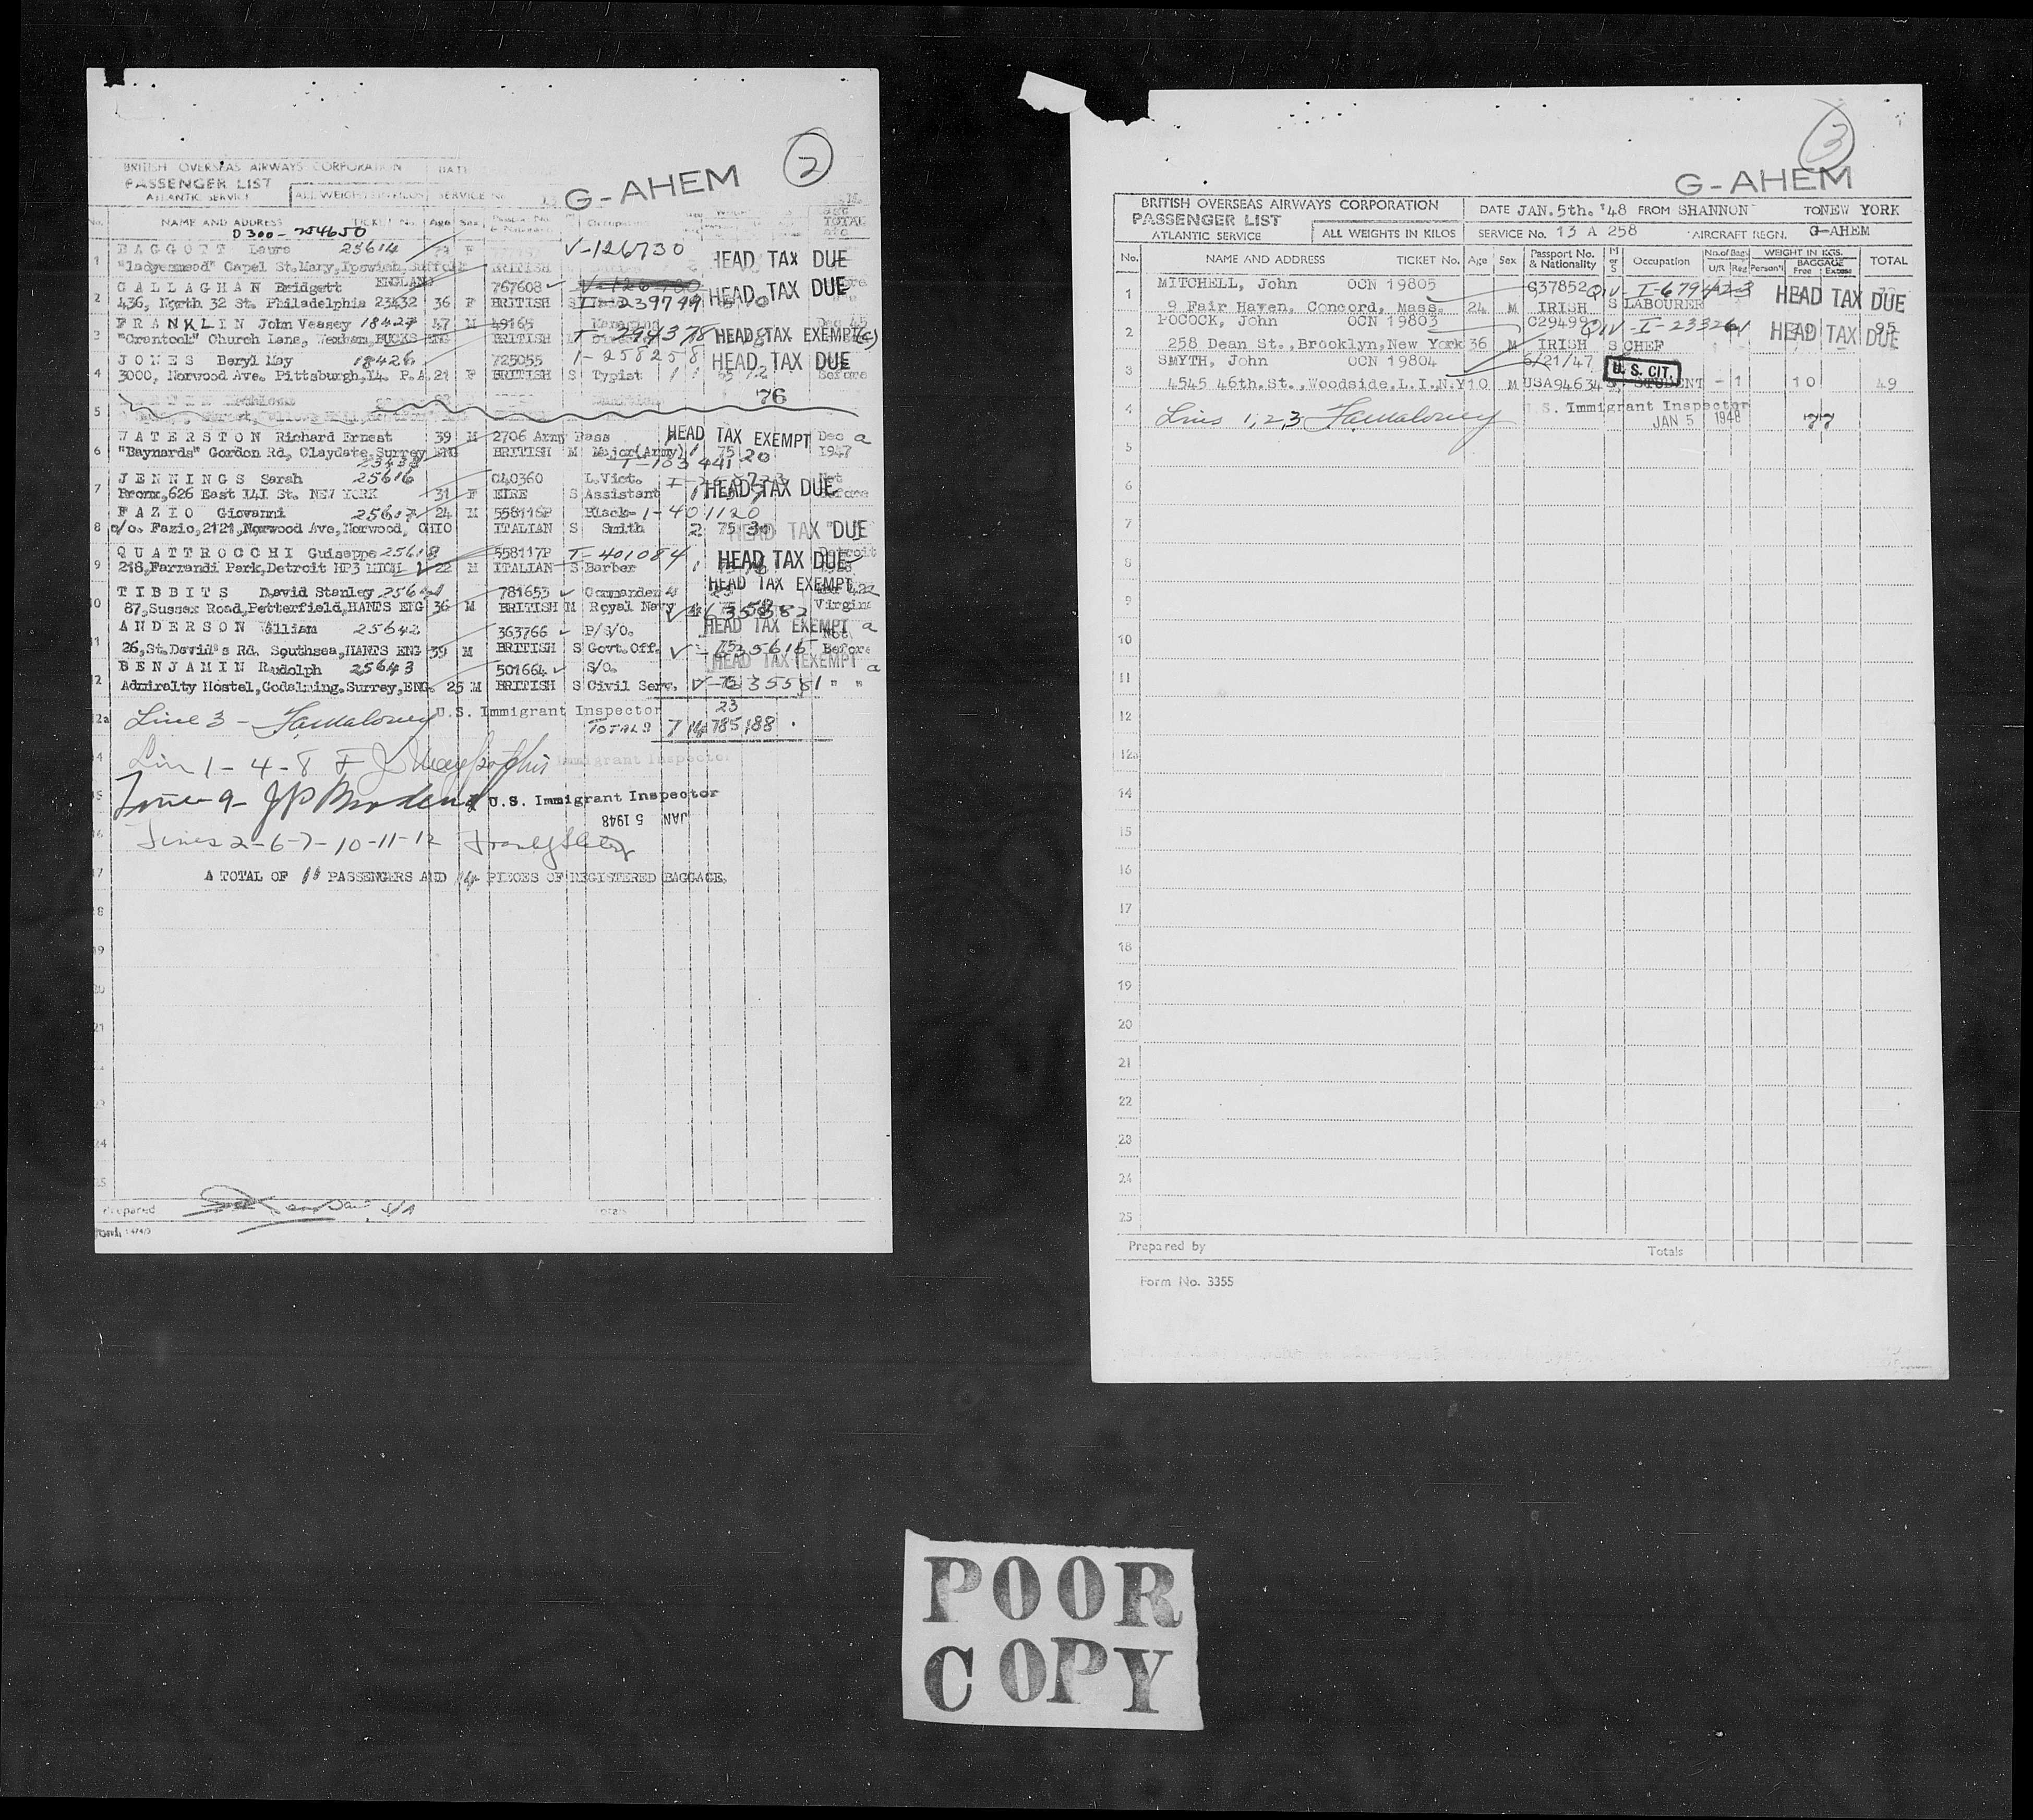 2
G-AHEM
BRITISH OVERSEAS AIRWAYS CORPORATION
PASSENGER LIST
ATLANTIC SERVICE ALL WEIGHTS IN KILOS SERVICE No.
No. NAME AND ADDRESS TICKET No. Age Sex Occupation TOTAL
D300-254650
1 BAGGOTT Laura 25614 F V-126730 HEAD TAX DUE
"Ladyesmead" Capel St.Mary, Ipswich, Suffolk ENGLAND BRITISH
2 GALLAGHAN Bridgett 767608 HEAD TAX DUE
436, North 32 St. Philadelphia 23432 36 F BRITISH S I-239799
3 FRANKLIN John Veasey 18427 47 M 49165 T-294378 HEAD TAX EXEMPT (c)
"Crantock" Church Lane, Wexham, BUCKS ENG BRITISH
4 JONES Beryl May 18426 725055 I-258258 HEAD TAX DUE
3000, Norwood Ave. Pittsburgh, 14. P.A 21 F BRITISH S Typist Before
5 76
6 WATERSTON Richard Ernest 39 M 2706 Army Pass HEAD TAX EXEMPT Dec a
"Baynards" Gordon Rd, Claygate. Surrey ENG BRITISH M Major(Army) 75 20 1947
T-103441
7 JENNINGS Sarah 25616 C40360 L.Vict. Not
Bronx, 626 East 141 St. NEW YORK 31 F EIRE S Assistant HEAD TAX DUE Before
8 FAZIO Giovanni 25617 24 M 558116P Black- I-401120
c/o. Fazio, 2121, Norwood Ave, Norwood, OHIO ITALIAN S Smith 2 75 HEAD TAX DUE
9 QUATTROCCHI Guiseppe 25618 558117P I-401084 HEAD TAX DUE Detroit
218, Farrandi Park, Detroit HP3 MICH 22 M ITALIAN S Barber
10 TIBBITS David Stanley 781653 Commander HEAD TAX EXEMPT
87, Sussex Road, Petterfield, HANTS ENG 36 M BRITISH M Royal Navy Virgin
11 ANDERSON William 25642 363766 P/S/O. HEAD TAX EXEMPT a
26, St. David's Rd. Southsea, HANTS ENG 39 M BRITISH S Govt. Off. V-635615 Before
12 BENJAMIN Rudolph 25643 501664 S/O. HEAD TAX EXEMPT a
Admiralty Hostel, Godalming. Surrey, ENG. 25 M BRITISH S Civil Serv. V-635581 " "
Line 3 - Famaloney U.S. Immigrant Inspector 23
TOTALS 7 14 785 188
Line 1-4-8 Immigrant Inspector
Line 9- U.S. Immigrant Inspector
JAN 5 1948
Lines 2-6-7-10-11-12
A TOTAL OF 11 PASSENGERS AND 14 PIECES OF REGISTERED BAGGAGE.
Prepared
Totals
3
G-AHEM
BRITISH OVERSEAS AIRWAYS CORPORATION DATE JAN. 5th. '48 FROM SHANNON TO NEW YORK
PASSENGER LIST
ATLANTIC SERVICE ALL WEIGHTS IN KILOS SERVICE No. 13 A 258 AIRCRAFT REGN. G-AHEM
No. NAME AND ADDRESS TICKET No. Age Sex Passport No. & Nationality M or S Occupation No. of Bags U/R Reg WEIGHT IN KGS. Person'l BAGGAGE Free Excess TOTAL
1 MITCHELL, John OCN 19805 C37852 QIV-I-679423 HEAD TAX DUE
9 Fair Haven, Concord, Mass. 24 M IRISH S LABOURER
2 POCOCK, John OCN 19803 C29499 QIV-I-233261 HEAD TAX DUE 95
258 Dean St., Brooklyn, New York 36 M IRISH S CHEF
3 SMYTH, John OCN 19804 6/21/47 U. S. CIT.
4545 46th. St., Woodside. L.I.N.Y 10 M USA94634 S STUDENT - 1 10 49
4 Lines 1,2,3 Famaloney U.S. Immigrant Inspector
JAN 5 1948 77
5
6
7
8
9
10
11
12
12a
14
15
16
17
18
19
20
21
22
23
24
25
Prepared by Totals
Form No. 3355
POOR
COPY